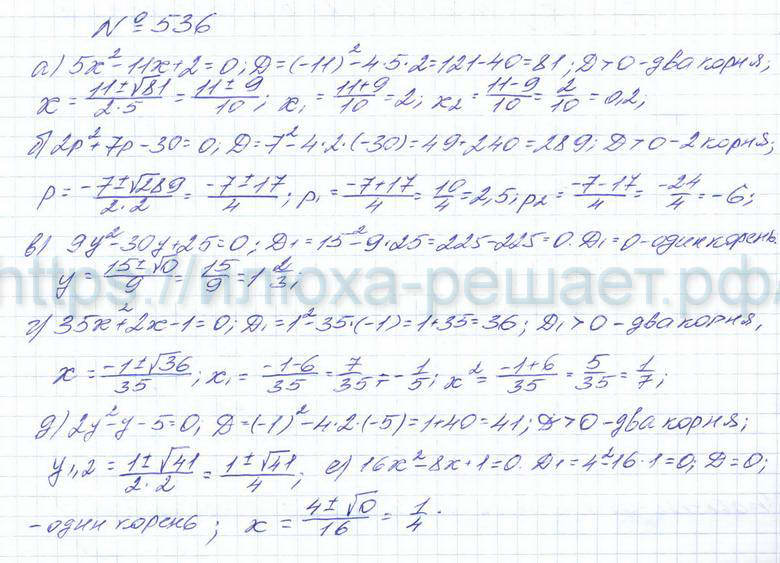 № 536
а) 5x² - 11x + 2 = 0; D = (-11)² - 4·5·2 = 121 - 40 = 81; D > 0 - два корня;
x = (11 ± √81)/(2·5) = (11 ± 9)/10; x₁ = (11+9)/10 = 2; x₂ = (11-9)/10 = 2/10 = 0,2;
б) 2p² + 7p - 30 = 0; D = 7² - 4·2·(-30) = 49 + 240 = 289; D > 0 - 2 корня;
p = (-7 ± √289)/(2·2) = (-7 ± 17)/4; p₁ = (-7+17)/4 = 10/4 = 2,5; p₂ = (-7-17)/4 = -24/4 = -6;
в) 9y² - 30y + 25 = 0; D₁ = 15² - 9·25 = 225 - 225 = 0. D₁ = 0 - один корень.
y = (15 ± √0)/9 = 15/9 = 1 2/3;
https://илюха-решает.рф/
г) 35x² + 2x - 1 = 0; D₁ = 1² - 35·(-1) = 1 + 35 = 36; D₁ > 0 - два корня,
x = (-1 ± √36)/35; x₁ = (-1-6)/35 = 7/35 = -1/5; x² = (-1+6)/35 = 5/35 = 1/7;
д) 2y² - y - 5 = 0; D = (-1)² - 4·2·(-5) = 1 + 40 = 41; D > 0 - два корня;
y₁,₂ = (1 ± √41)/(2·2) = (1 ± √41)/4; е) 16x² - 8x + 1 = 0. D₁ = 4² - 16·1 = 0; D = 0;
- один корень; x = (4 ± √0)/16 = 1/4.